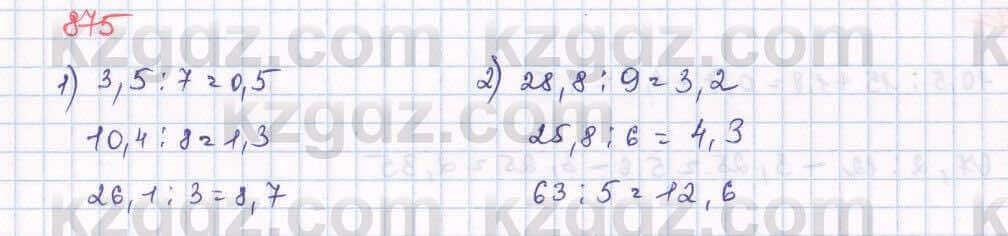 875
1) 3,5 : 7 = 0,5
10,4 : 8 = 1,3
26,1 : 3 = 8,7
2) 28,8 : 9 = 3,2
25,8 : 6 = 4,3
63 : 5 = 12,6
kzgdz.com
kzgdz.com
kzgdz.com
kzgdz.com